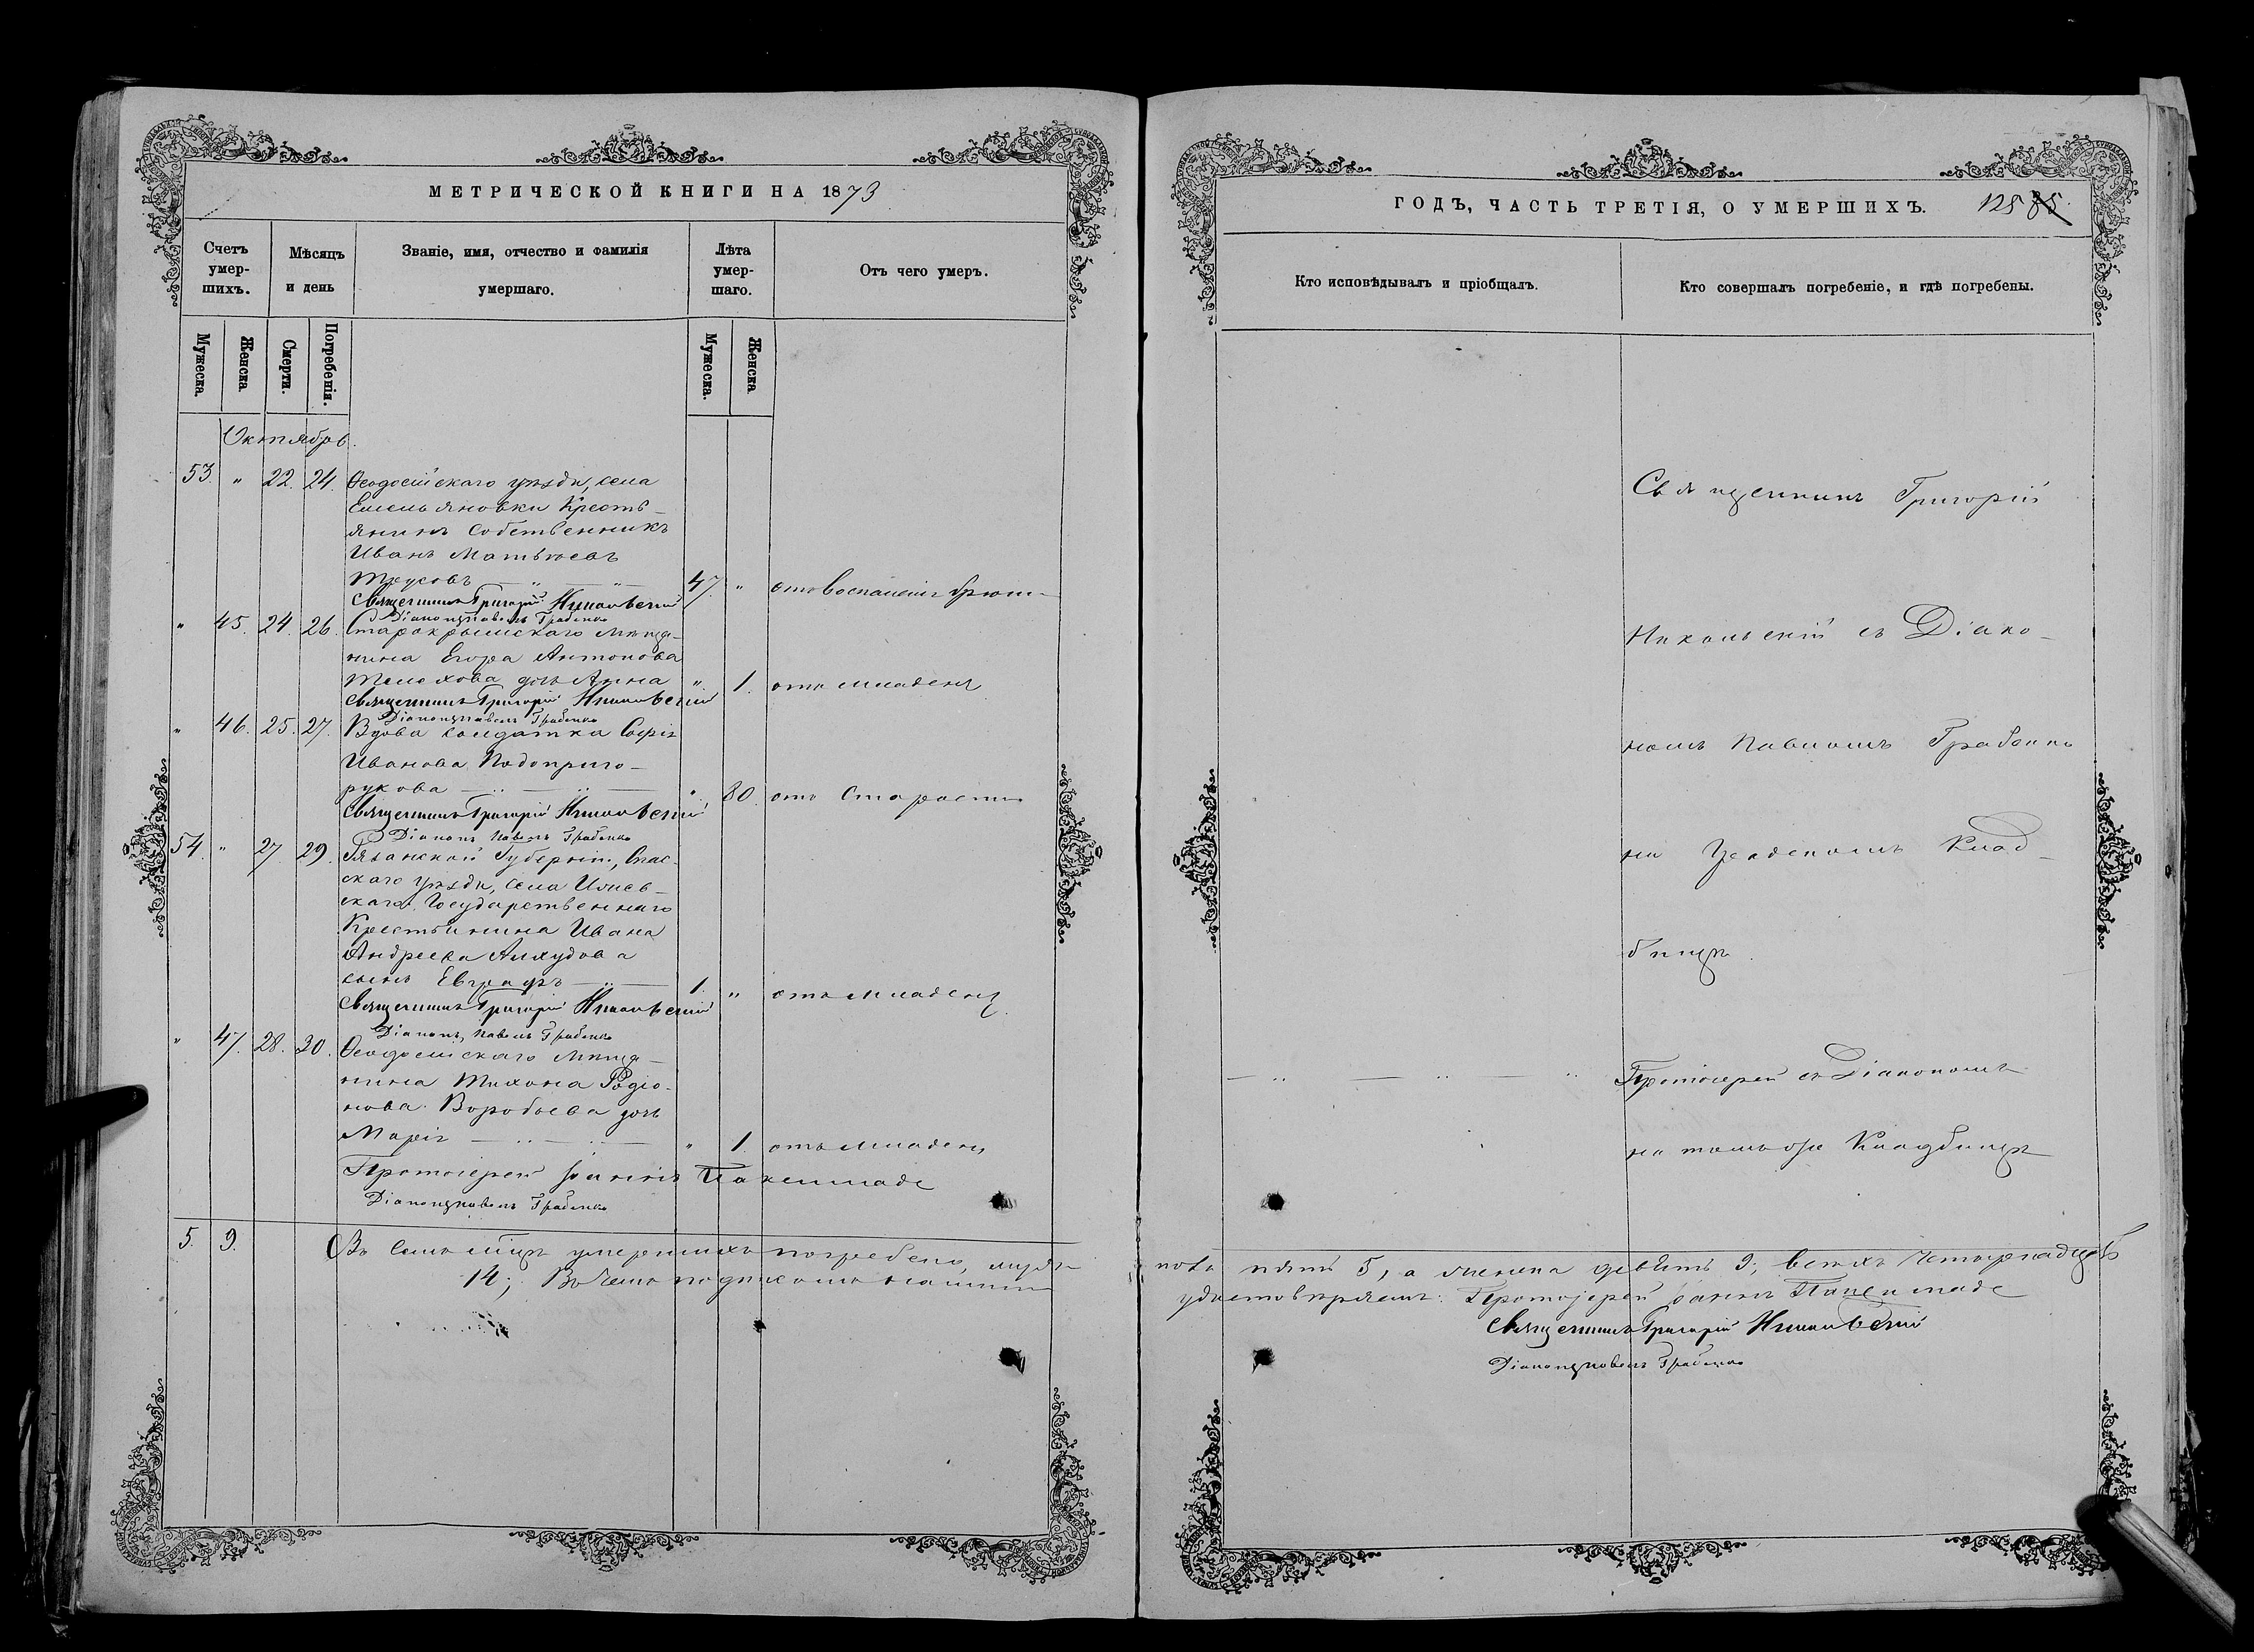 МЕТРИЧЕСКОЙ КНИГИ НА 1873
Счетъ умер-
шихъ.
Мѣсяцъ
и день
Званіе, имя, отчество и фамилія
умершаго.
Лѣта
умер-
шаго.
Отъ чего умеръ.
Мужеска.
Женска
Смерти.
Погребенія.
Мужеска.
Женска
Октябрь.
53. " 22. 24. Ѳеодосійскаго уѣзда, села
Емельяновки Кресть-
янинъ Собственникъ
Иванъ Матвѣевъ
Трусовъ 47. " отъ воспаленія
Священникъ Григорій Никольскій
Діаконъ Павелъ Грабенко
" 45. 24. 26. Старокрымскаго мѣща-
нина Егора Антонова
дочь Анна " 1. отъ младен
Священникъ Григорій Никольскій
Діаконъ Павелъ Грабенко
" 46. 25. 27. Вдова солдатка Софія
Иванова Подоприго-
рукова " 80. отъ Старости
Священникъ Григорій Никольскій
Діаконъ Павелъ Грабенко
54. " 27. 29. Рязанской Губерніи, Спас-
скаго уѣзда, села
Государственнаго
Крестьянина Ивана
Андреева Алхудова
сынъ Евграфъ 1. " отъ младен
Священникъ Григорій Никольскій
Діаконъ Павелъ Грабенко
" 47. 28. 30. Ѳеодосійскаго мѣща-
нина Тихона Родіо-
нова Воробьева дочь
Марія " 1. отъ младен
Протоіерей Іоаннъ
Діаконъ Павелъ Грабенко
5. 9. Въ семъ мцѣ умершихъ погребено, муже-
14; Въ чемъ подписомъ нашимъ
ГОДЪ, ЧАСТЬ ТРЕТІЯ, О УМЕРШИХЪ. 125 85
Кто исповѣдывалъ и пріобщалъ.
Кто совершалъ погребеніе, и гдѣ погребены.
Священникъ Григорій
Никольскій съ Діако-
номъ Павломъ Грабенко
на Градскомъ Клад-
бищѣ.
Протоіерей съ Діакономъ
на томъ же Кладбищѣ
пола пять 5, а женска девять 9; всѣхъ четырнадцать
удостовѣряемъ: Протоіерей Іоаннъ
Священникъ Григорій Никольскій
Діаконъ Павелъ Грабенко